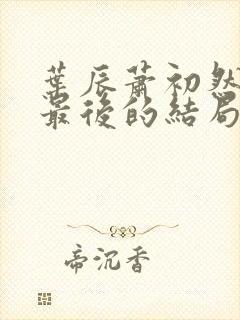 葉辰蕭初然
最後的結局
帝沉香